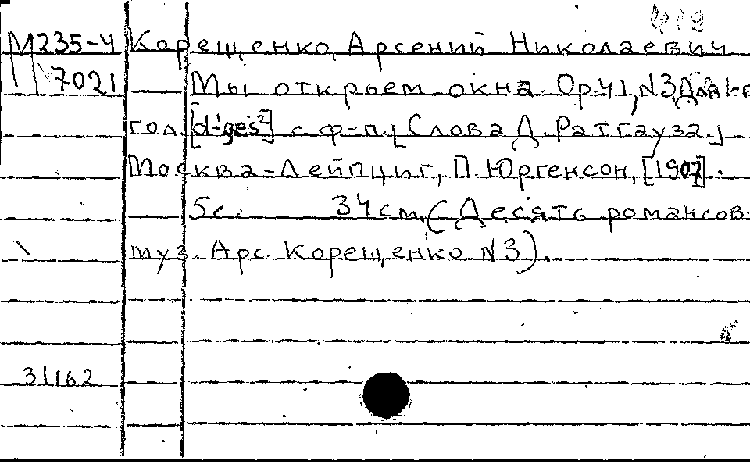 М235-4 Корещенко, Арсений Николаевич
7021 Мы откроем окна. Ор41, N3 Для
гол. [d¹-ges²] с ф-п. [Слова Д. Ратгауза.]
Москва-Лейпциг, П. Юргенсон, [1907].
5с. 34см. (Десять романсов
муз. Арс. Корещенко N3).
31162